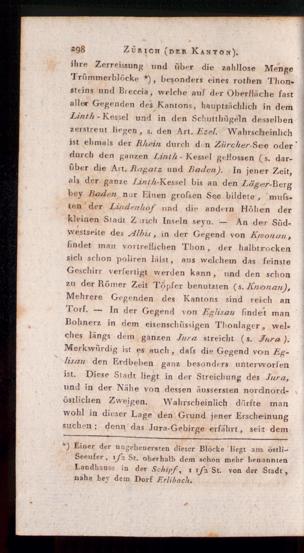 298 ZÜRICH (DER KANTON).
ihre Zerreissung und über die zahllose Menge
Trümmerblöcke *), besonders eines rothen Thon-
steins und Breccia, welche auf der Oberfläche fast
aller Gegenden des Kantons, hauptsächlich in dem
Linth-Kessel und in den Schutthügeln desselben
zerstreut liegen, s. den Art. Ezel. Wahrscheinlich
ist ehmals der Rhein durch den Zürcher-See oder
durch den ganzen Linth-Kessel geflossen (s. dar-
über die Art. Ragatz und Baden). In jener Zeit,
als der ganze Linth-Kessel bis an den Läger-Berg
bey Baden nur Einen großen See bildete, muß-
ten der Lindenhof und die andern Höhen der
kleinen Stadt Zürich Inseln seyn. — An der Süd-
westseite des Albis, in der Gegend von Knonau,
findet man vortreflichen Thon, der halbtrocken
sich schon poliren läßt, aus welchem das feinste
Geschirr verfertigt werden kann, und den schon
zu der Römer Zeit Töpfer benutzten (s. Knonau).
Mehrere Gegenden des Kantons sind reich an
Torf. — In der Gegend von Eglisau findet man
Bohnerz in dem eisenschüssigen Thonlager, wel-
ches längs dem ganzen Jura streicht (s. Jura).
Merkwürdig ist es auch, daß die Gegend von Eg-
lisau den Erdbeben ganz besonders unterworfen
ist. Diese Stadt liegt in der Streichung des Jura,
und in der Nähe von dessen äussersten nordnord-
östlichen Zweigen. Wahrscheinlich dürfte man
wohl in dieser Lage den Grund jener Erscheinung
suchen; denn das Jura-Gebirge erfährt, seit dem
*) Einer der ungeheuersten dieser Blöcke liegt am östli-
Seeufer, 1/2 St. oberhalb dem schon mehr benannten
Landhause in der Schipf, 1 1/2 St. von der Stadt,
nahe bey dem Dorf Erlibach.